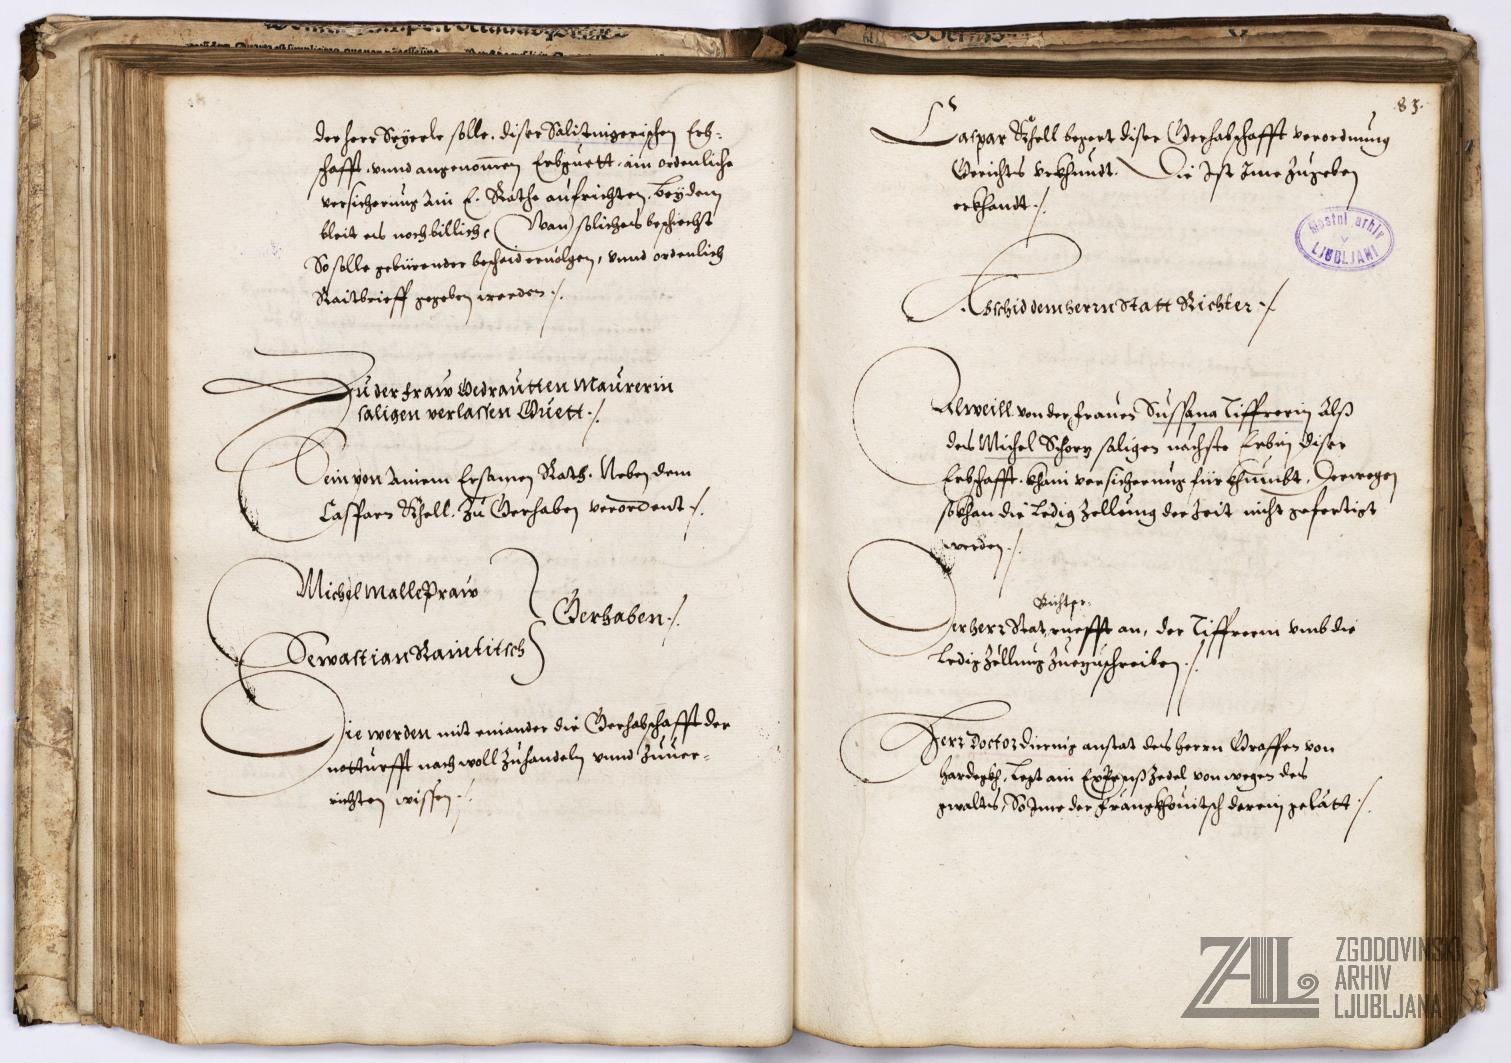 der herr Seyerle solle, diser Salitnigerischen Erb-
schafft, vnnd angenomen Erbguett, ain ordenliche
versicherung Ain E. Rathe aufrichten, beÿ dem
bleit es noch billich, Wan solliches beschiecht
So solle gebürender bescheid eruolgen, vnnd ordenlich
Raitbrieff gegeben werden ./.
Zu der fraw Gedrautten Maurerin
saligen verlassen Guett ./.
Sein von Ainem Ersamen Rath. Neben dem
Casparn Khell. Zu Gerhaben verordent ./.
Michel Mallepraw
Gerhaben ./.
Sewastian Raintitsch
Die werden mit einander die Gerhabschafft der
notturfft nach woll Zuhandeln vnnd Zuuer-
richten wissen ./.
83.
Caspar Khell begert diser Gerhabschafft verordnung
Gerichts vrkhundt. Die Ist Ime Zugeben
erkhandt ./.
Mestni arhiv
v
LJUBLJANI
Abschid dem herrn Statt Richter ./.
Alweill von der frauen Sussana Tiffrerin Alß
des Michel Schory saligen nachste Erbin diser
Erbschafft, khain versicherung fürkhumbt, Derwegen
so khan die Ledig Zellung der Zeit nicht gefertigt
werden ./.
Richter
Der herr Stat ruefft an, der Tiffrerin vmb die
Ledig Zellung Zuezuschreiben ./.
Herr Doctor diernig anstat des herrn Graffen von
Hardegkh, Legt ain Expenß Zedel von wegen des
gwalts, So Ime der frangkhouitsch darein gelátt ./.
ZAL
ZGODOVINSKI
ARHIV
LJUBLJANA